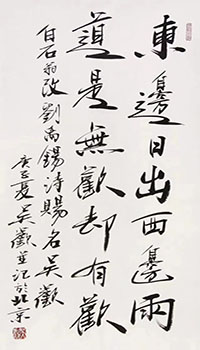 東邊日出西邊雨
道是無歡卻有歡
白石翁改劉禹錫詩賜名吳歡
庚辰夏吳歡並記於北京